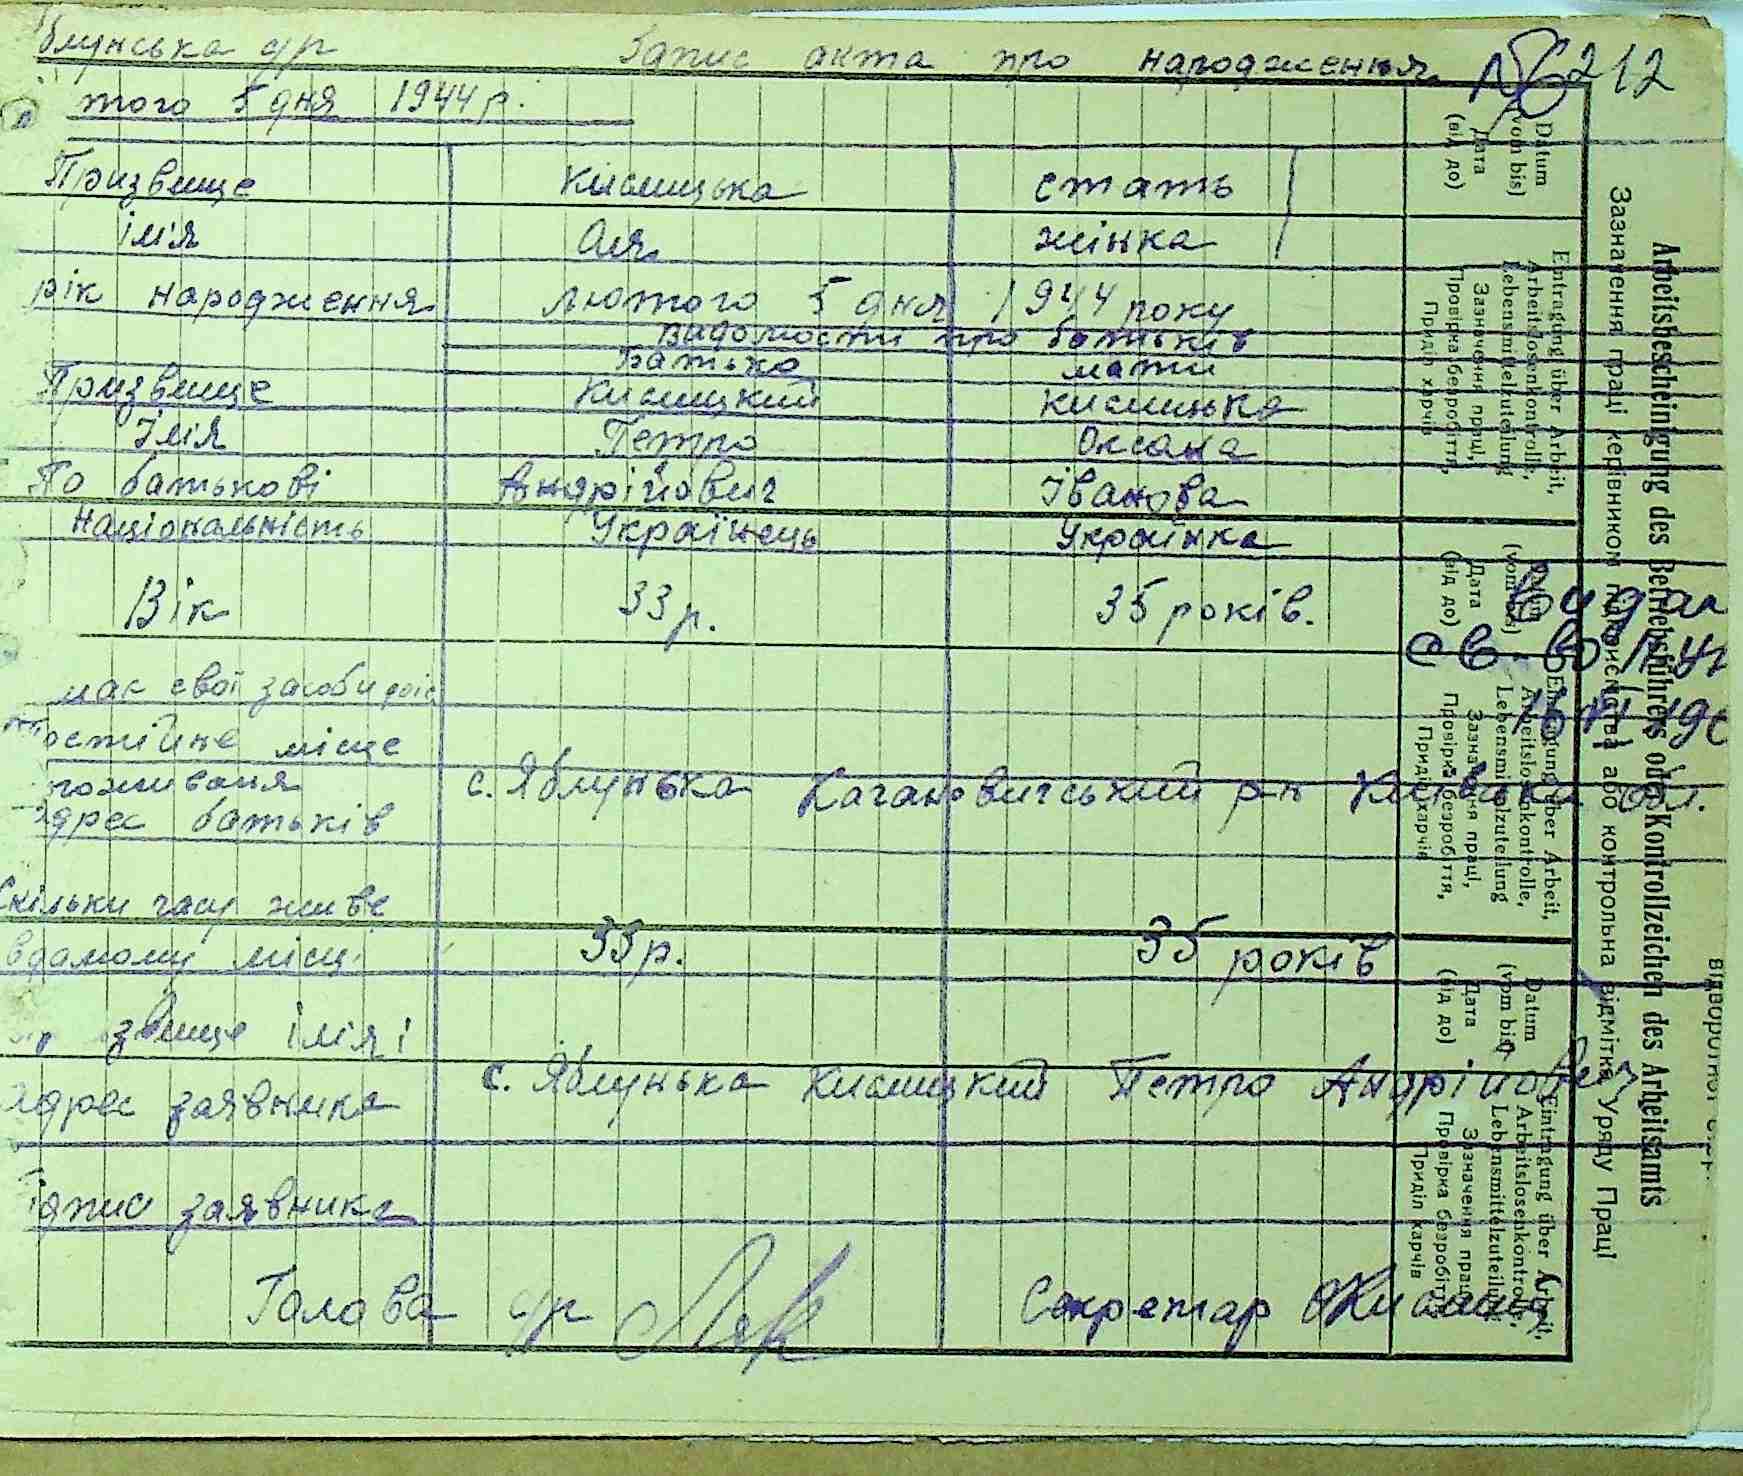 блунська с/р Запис акта про народження № 212
того 5 дня 1944 р.
Призвище Кислицька стать
ім'я Оля жінка
рік народження лютого 5 дня 1944 року
видомости про батьків
батько мати
Призвище Кислицкий Кислицька
Імія Петро Оксана
По батькові Андрійович Іванова
національність Українець Українка
Вік 33 р. 35 років.
має свої засоби
постійне місце
проживаня
адрес батьків с. Яблунька Кагановичський р-н Київськи обл.
Скільки часу живе
вдамому місці 33 р. 35 років
звище імія і
адрес заявника с. Яблунька Кислицкий Петро Андрійович
ідпис заявника
Голова с/р Секретар
Видан
св-во
Arbeitsbescheinigung des Betriebsführers oder Kontrollzeichen des Arbeitsamts
Зазначення праці керівником підприємства або контрольна відмітка Уряду Праці
Datum
(vom bis)
Дата
(від до)
Eintragung über Arbeit,
Arbeitslosenkontrolle,
Lebensmittelzuteilung
Зазначення праці,
Провірка безробіття,
Приділ харчів
Datum
(vom bis)
Дата
(від до)
Eintragung über Arbeit,
Arbeitslosenkontrolle,
Lebensmittelzuteilung
Зазначення праці,
Провірка безробіття,
Приділ харчів
Datum
(vom bis)
Дата
(від до)
Eintragung über Arbeit,
Arbeitslosenkontrolle,
Lebensmittelzuteilung
Зазначення праці,
Провірка безробіття,
Приділ харчів